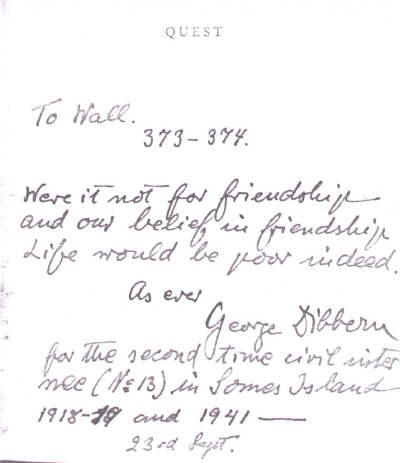 QUEST
To Wall.
373-374.
Were it not for friendship
and our belief in friendship
Life would be poor indeed.
As ever
George Dibbern
for the second time civil inter
nee (No 13) in Somes Island
1918-19 and 1941 —
23rd Sept.